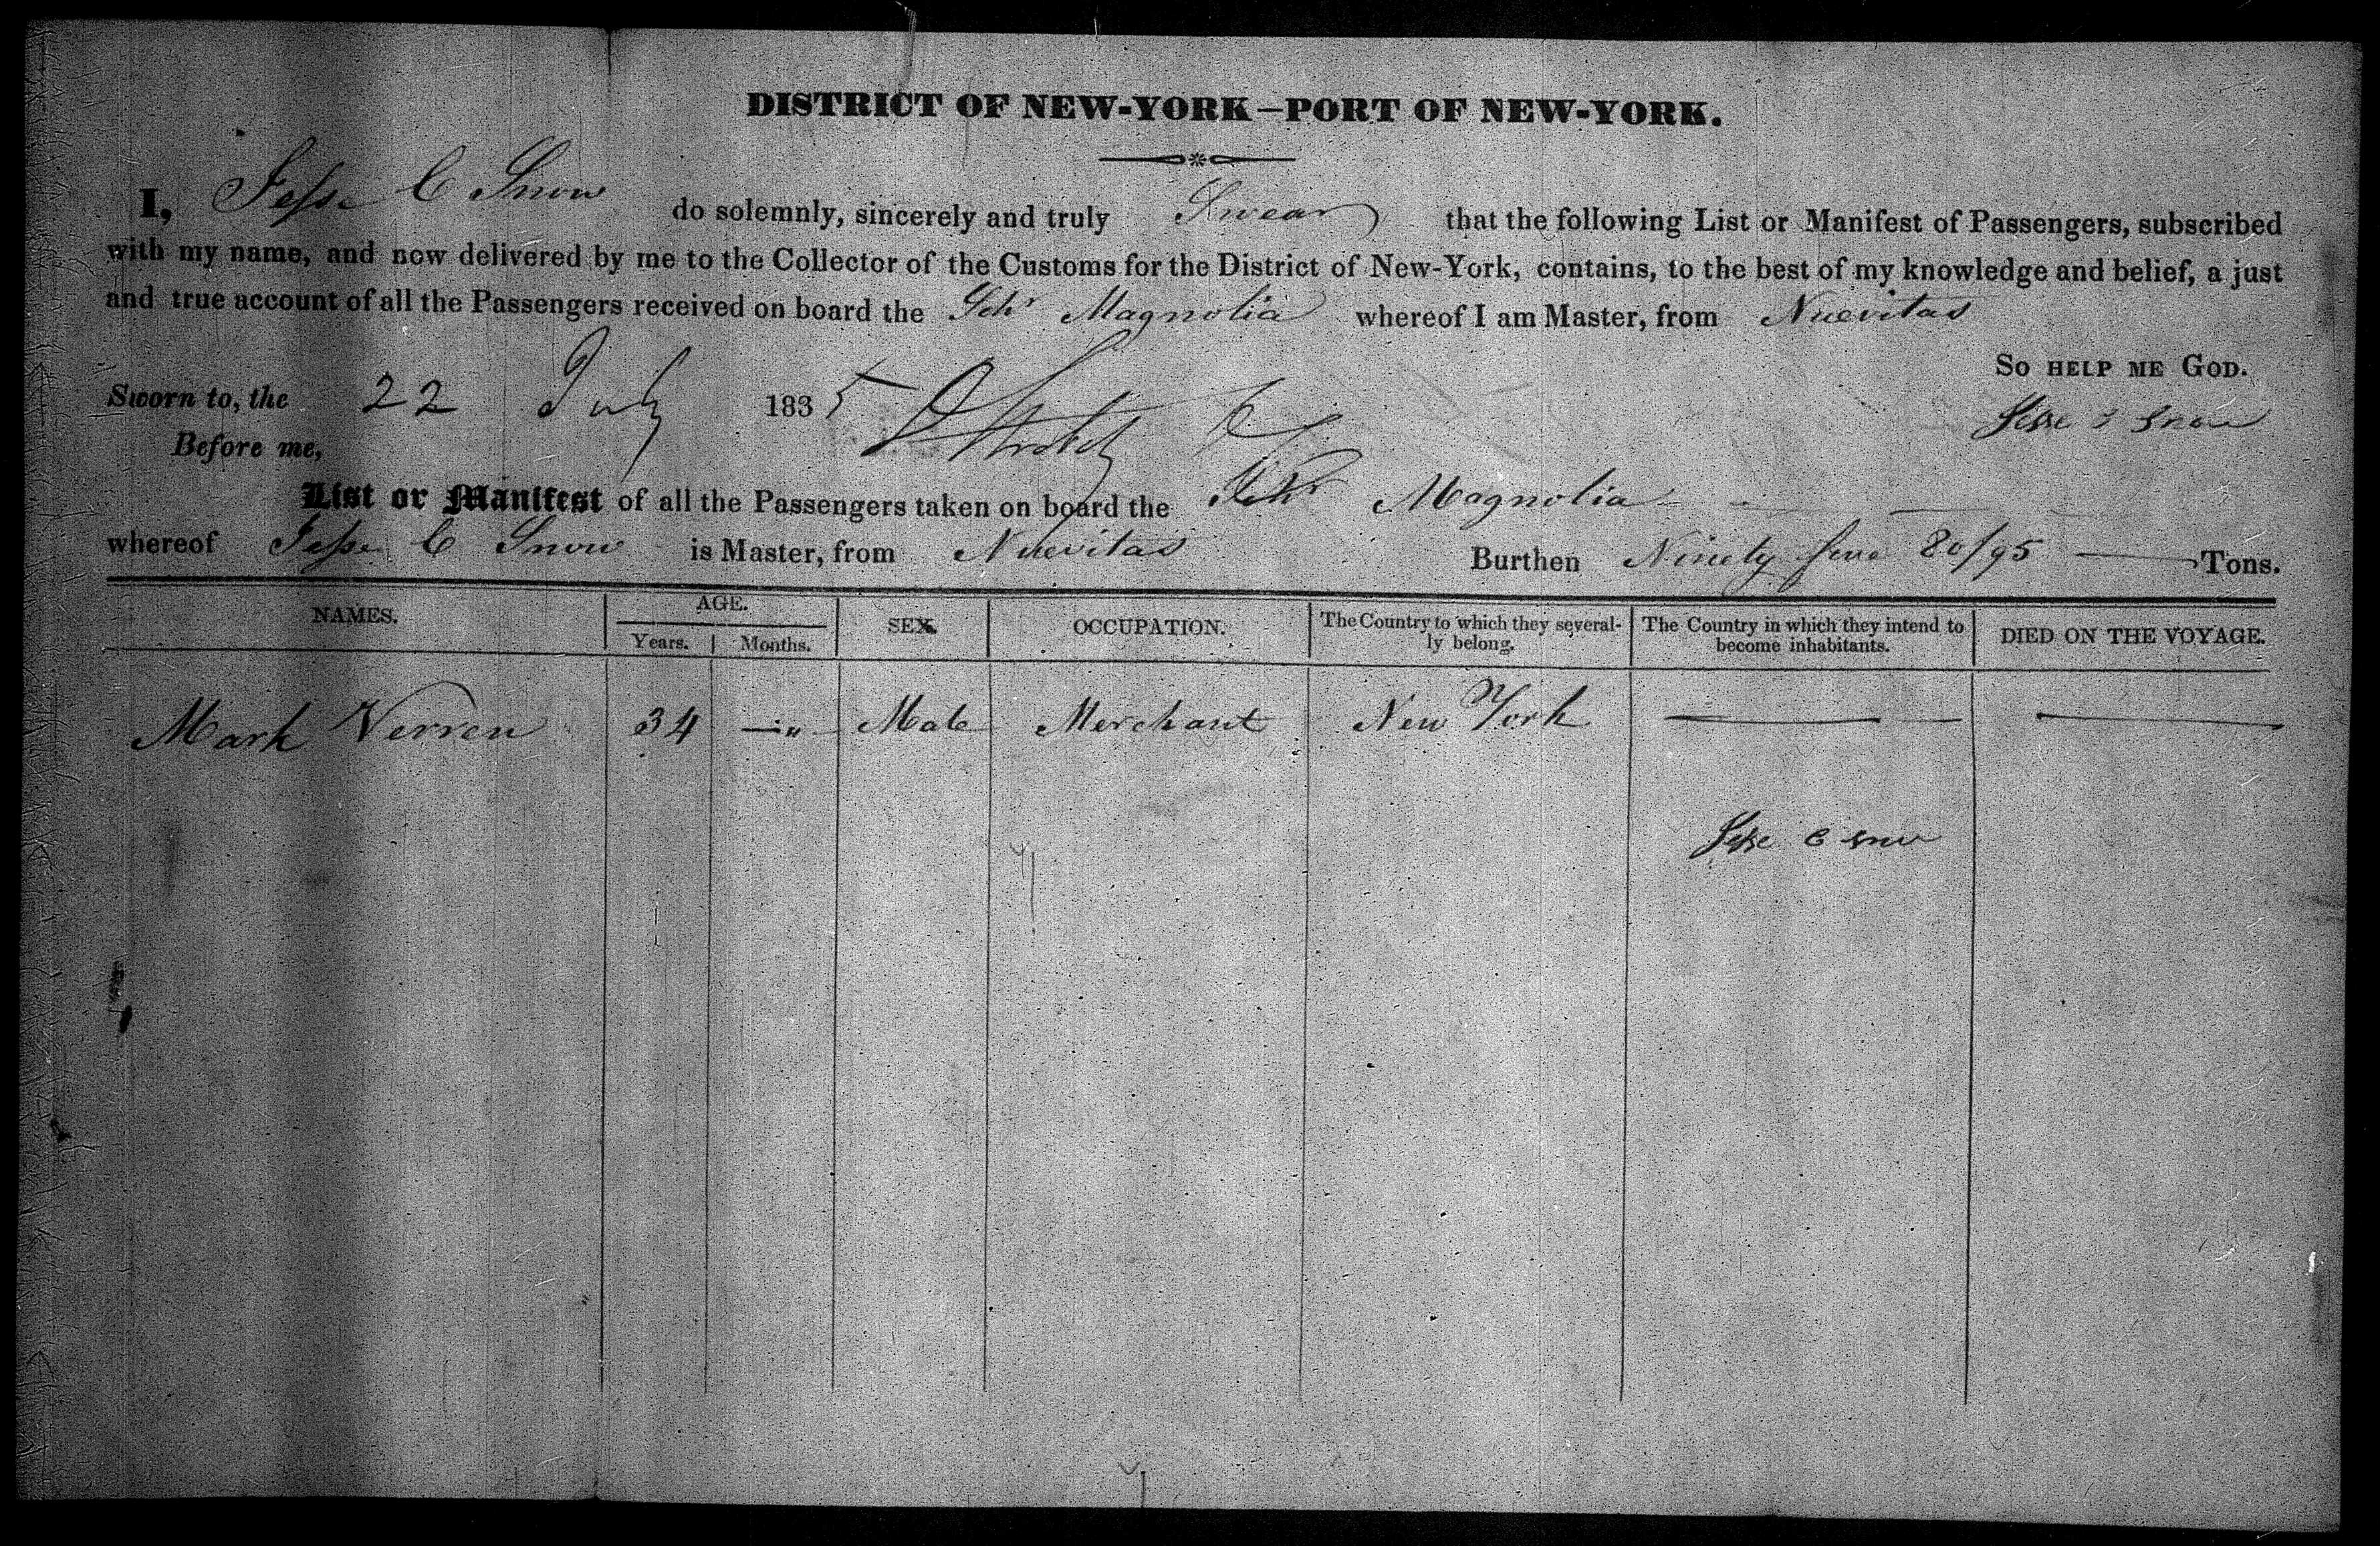 DISTRICT OF NEW-YORK—PORT OF NEW-YORK.
I, Jesse C Snow do solemnly, sincerely and truly Swear that the following List or Manifest of Passengers, subscribed
with my name, and now delivered by me to the Collector of the Customs for the District of New-York, contains, to the best of my knowledge and belief, a just
and true account of all the Passengers received on board the Schr Magnolia whereof I am Master, from Nuevitas
SO HELP ME GOD.
Sworn to, the 22 July 1835
Jesse C Snow
Before me,
List or Manifest of all the Passengers taken on board the Schr Magnolia
whereof Jesse C Snow is Master, from Nuevitas Burthen Ninety five 80/95 Tons.
NAMES. AGE. Years. Months. SEX. OCCUPATION. The Country to which they several-ly belong. The Country in which they intend to become inhabitants. DIED ON THE VOYAGE.
Mark Verren 34 — " Male Merchant New York — —
Jesse C Snow